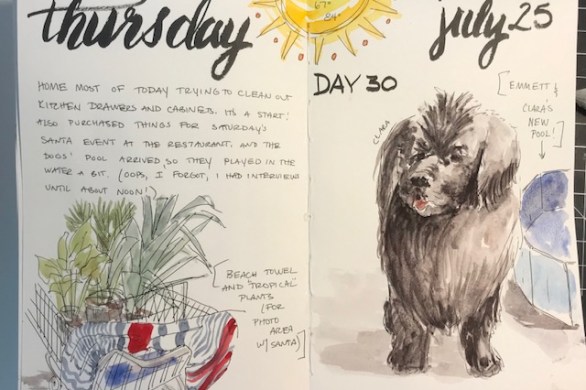 thursday
67°
84°
july 25
HOME MOST OF TODAY TRYING TO CLEAN OUT
KITCHEN DRAWERS AND CABINETS. IT'S A START!
ALSO PURCHASED THINGS FOR SATURDAY'S
SANTA EVENT AT THE RESTAURANT. AND THE
DOGS' POOL ARRIVED, SO THEY PLAYED IN THE
WATER A BIT. (OOPS, I FORGOT, I HAD INTERVIEWS
UNTIL ABOUT NOON!)
BEACH TOWEL
AND "TROPICAL"
PLANTS
(FOR
PHOTO
AREA
W/ SANTA)
DAY 30
CLARA
EMMETT &
CLARA'S
NEW
POOL!